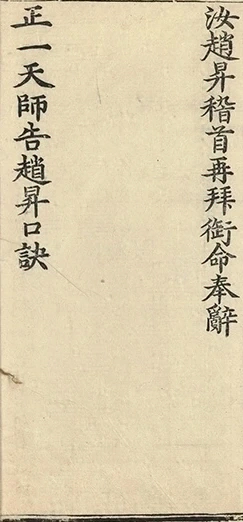 汝趙昇稽首再拜銜命奉辭
正一天師告趙昇口訣